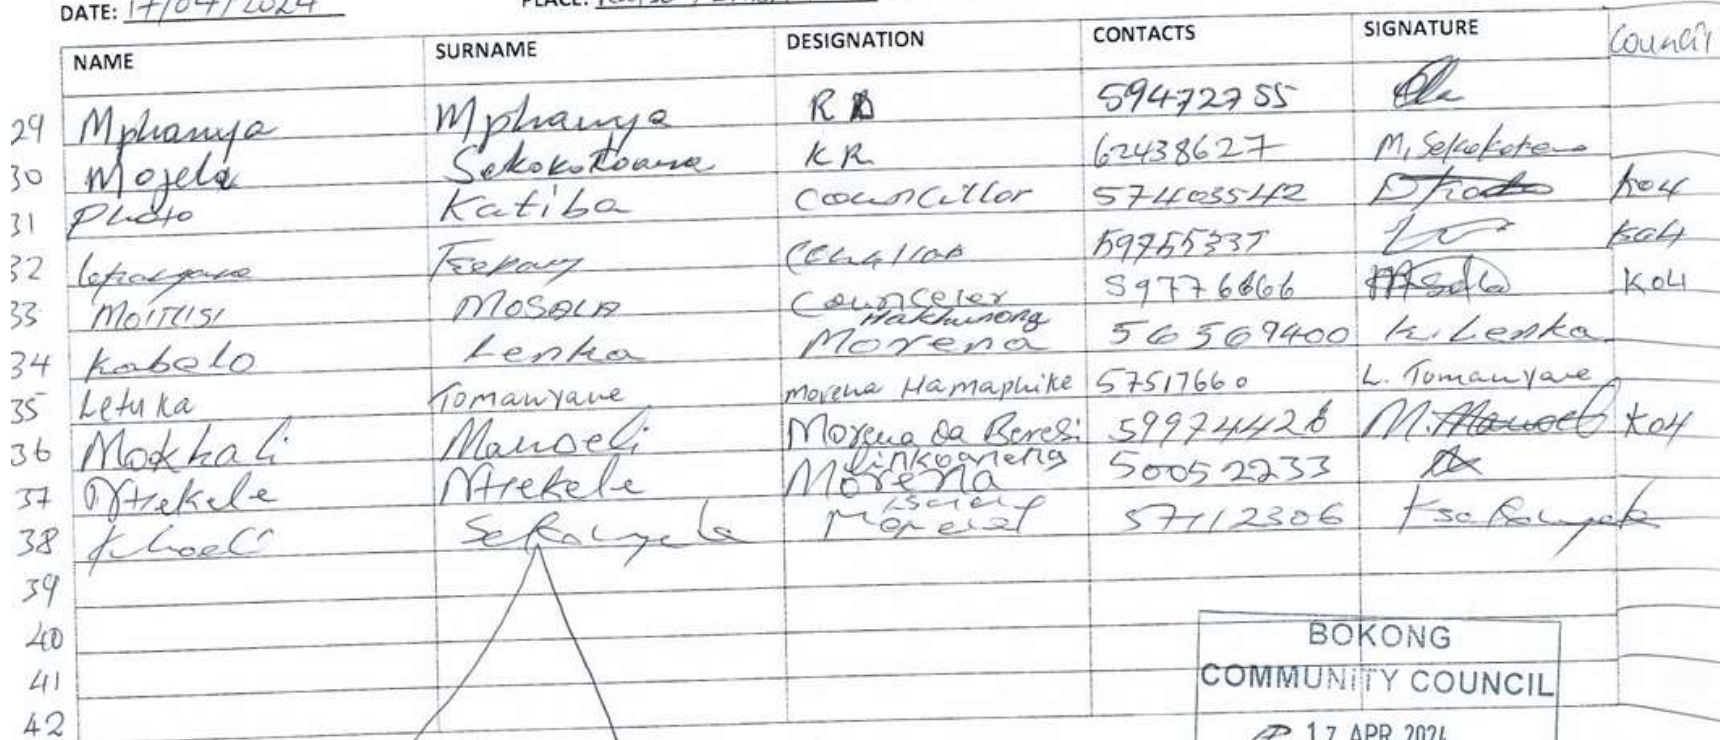 DATE: 17/04/2024 PLACE:
NAME SURNAME DESIGNATION CONTACTS SIGNATURE Council
29 Mphanya Mphanya R 59472755
30 Mojela Sekokotoana KR 62438627 M, Sekokotoana
31 Photo Katiba Councillor 57403542 K04
32 59755337 K04
33 MOITLISI MOSALA Counceler 59776666 K04
Hakhunong
34 Kabelo Lenka Morena 56569400 K. Lenka
35 Letuka Tomanyane morena Hamaphike 57517660 L. Tomanyane
36 Mokhali Manoeli Morena oa Beresi 59974428 M. Manoeli K04
Linkoaneng
37 Ntjekele Ntjekele Morena 50052233
38 Khoeli Sekonyela 57112306
39
40
41
42
BOKONG
COMMUNITY COUNCIL
17 APR 2024